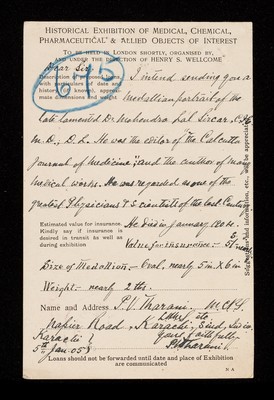 HISTORICAL EXHIBITION OF MEDICAL, CHEMICAL,
PHARMACEUTICAL & ALLIED OBJECTS OF INTEREST
TO BE HELD IN LONDON SHORTLY, ORGANISED BY,
AND UNDER THE DIRECTION OF HENRY S. WELLCOME
675
Dear Sir,
I intend sending you a
medallion portrait of the
late lamented Dr. Mahendra Lal Sircar, C.I.E.
M.D., D.L. He was the editor of "The Calcutta
Journal of Medicine", and the author of many
medical works. He was regarded as one of the
greatest Physicians & scientists of the last Century
He died in January 1904.
Estimated value for insurance.
Kindly say if insurance is
desired in transit as well as
during exhibition
Value for insurance:- 5/-
Size of Medallion:- Oval, nearly 5 in. x 6 in.
Weight:- nearly 2 lbs.
Name and Address P. V. Tharani, M.C.S.
etc.
Napier Road, Karachi, Sind, India.
Karachi
5th Jan. 05
yours faithfully
P. V. Tharani
Loans should not be forwarded until date and place of Exhibition
are communicated
Suggestions and information, etc., will be appreciated